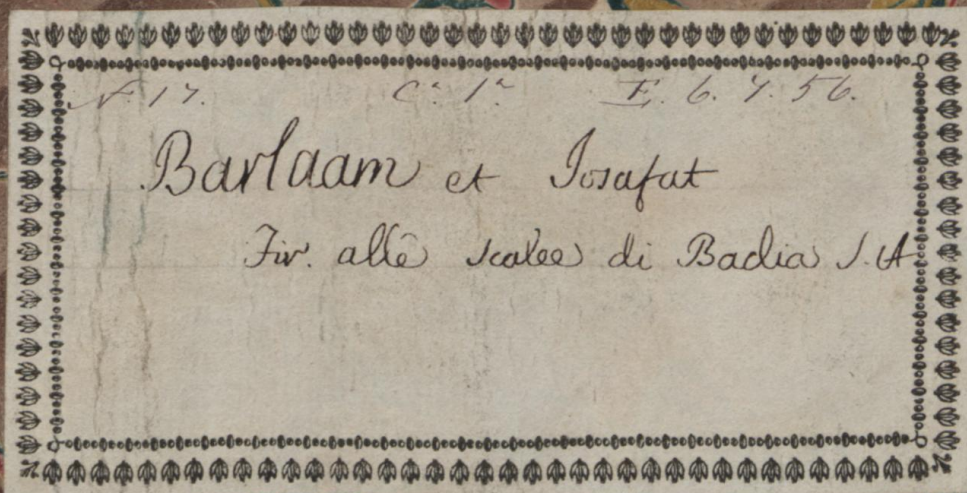 N. 17. C.ᵃ 1.ᵃ E. 6. 7. 56.
Barlaam et Iosafat
Fir. alle scalee di Badia S. A